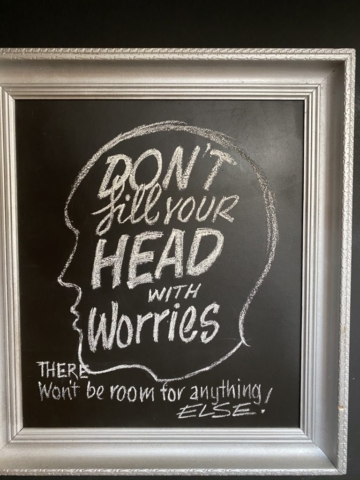 DON'T
fill YOUR
HEAD
WITH
Worries
THERE
Won't be room for anything
ELSE!